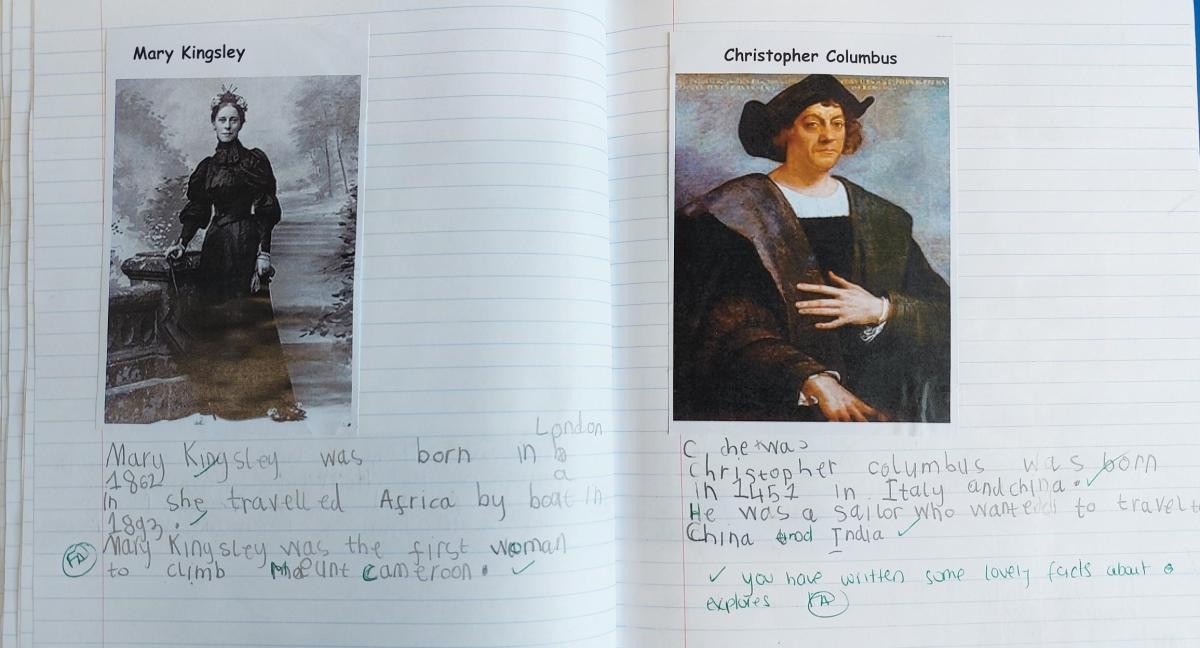 Mary Kingsley
London
Mary Kingsley was born in
1862 a
In she travelled Africa by boat in
1893.
FA Mary Kingsley was the first woman
to climb Mount Cameroon.
Christopher Columbus
C he was
christopher columbus was born
in 1451 in Italy and china.
He was a sailor who wanted to travel to
China and India
✓ you have written some lovely facts about
explores FA